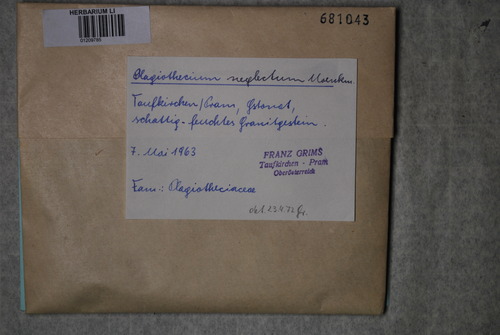 HERBARIUM LI
681043
Plagiothecium neglectum Moenkem.
Taufkirchen/Pram, Gstoaat,
schattig-feuchtes Granitgestein.
7. Mai 1963
FRANZ GRIMS
Taufkirchen - Pram
Oberösterreich
Fam.: Plagiotheciaceae
det.
Gr.